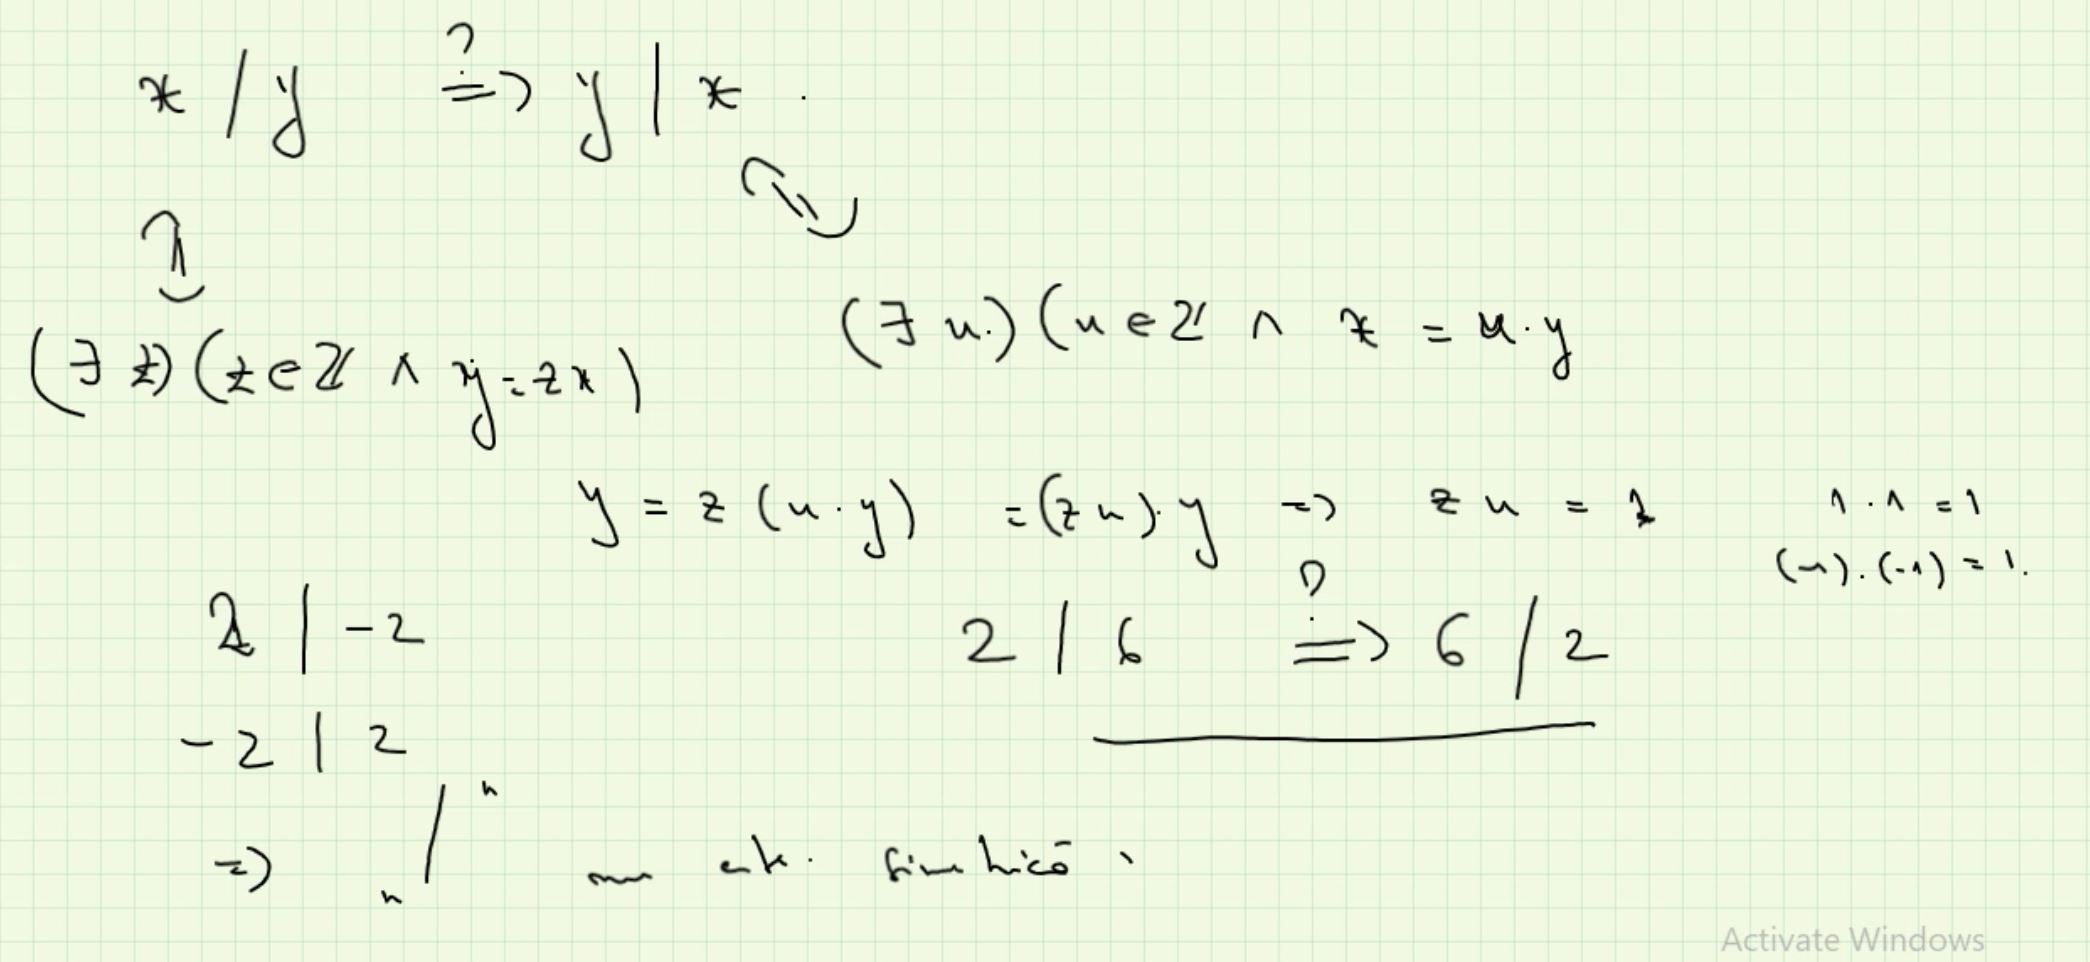 x | y ?⇒ y | x .
⇕ ⇕
(∃ u.) (u ∈ ℤ ∧ x = u · y
(∃ z) (z ∈ ℤ ∧ y = zx)
y = z (u · y) = (z u) · y ⇒ z u = 1 1 · 1 = 1
(-1) . (-1) = 1.
2 | -2 2 | 6 ?⇒ 6 | 2
-2 | 2
⇒ "|" nu este simetrică .
Activate Windows